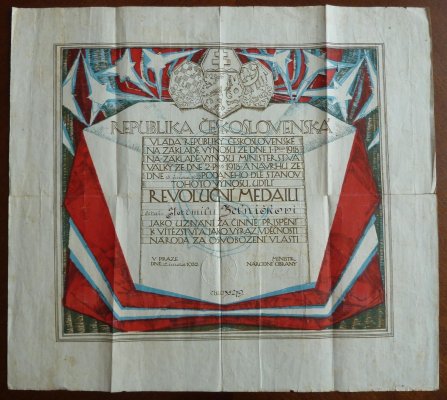 REPUBLIKA ČESKOSLOVENSKÁ
VLÁDA REPUBLIKY ČESKOSLOVENSKÉ
NA ZÁKLADĚ VÝNOSU ZE DNE 1. PROS. 1918,
NA ZÁKLADĚ VÝNOSU MINISTERSTVA
VÁLKY ZE DNE 2. PROS. 1918 A NÁVRHU ZE
DNE PODANÉHO DLE STANOV
TOHOTO VÝNOSU, UDÍLÍ
REVOLUČNÍ MEDAILI
JAKO UZNÁNÍ ZA ČINNÉ PŘISPĚNÍ
K VÍTĚZSTVÍ A JAKO VÝRAZ VDĚČNOSTI
NÁRODA ZA OSVOBOZENÍ VLASTI
V PRAZE MINISTR
DNE 1920 NÁRODNÍ OBRANY